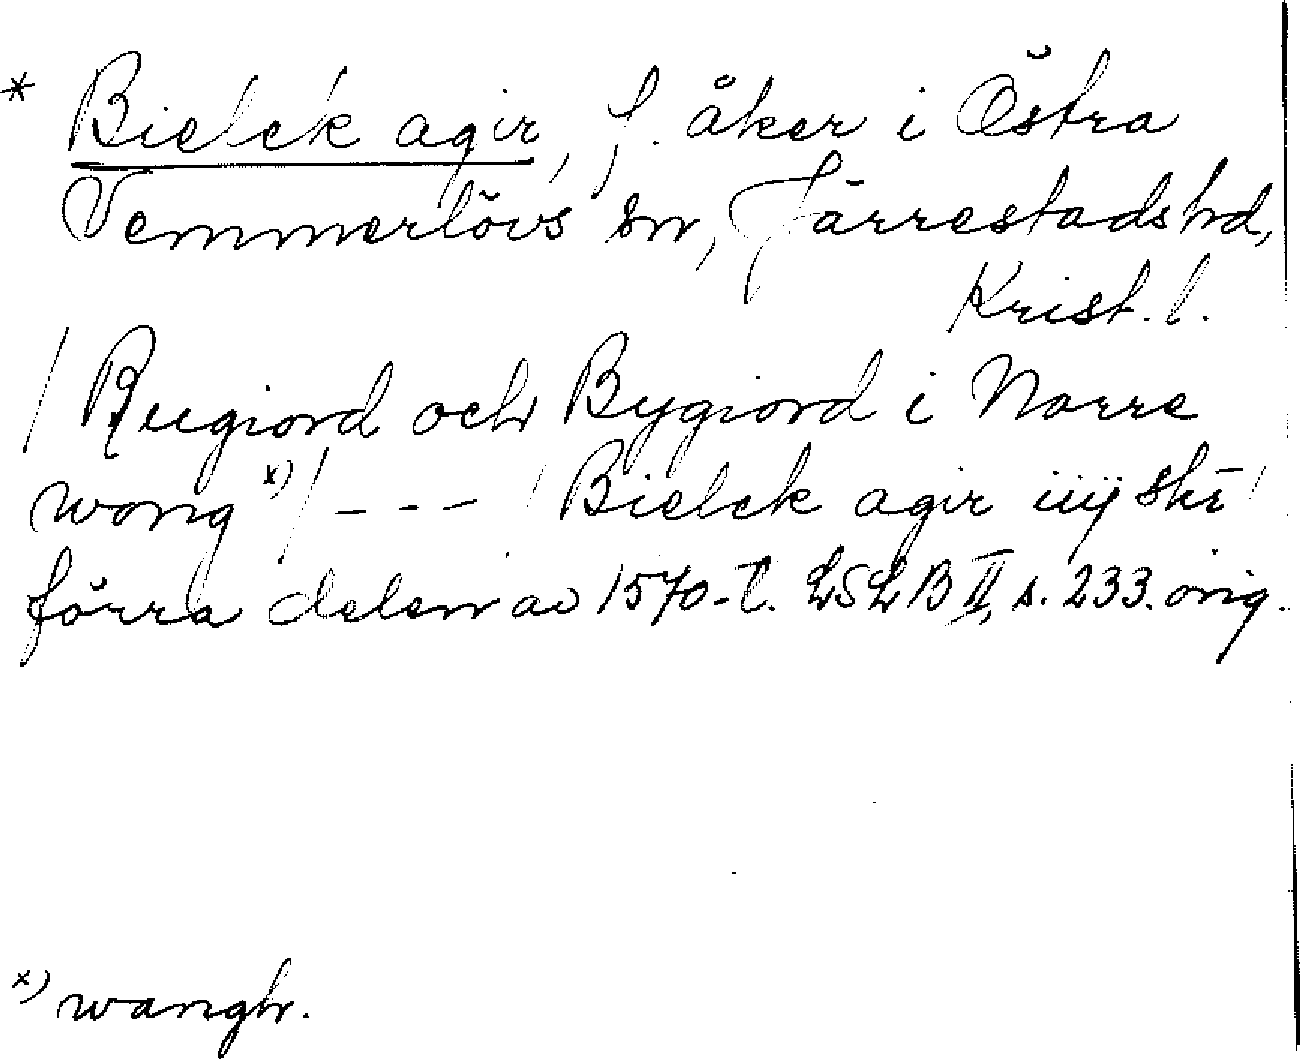 * Bielck agir, f. åker i Östra
Vemmerlövs sn, Järrestads hd,
Krist. l.
/ Rugiord och Bygiord i Norre
wong x) / - - - / Bielck agir iiij skr /
förra delen av 1570-t. LSLB II, s. 233. orig.
x) wangh.